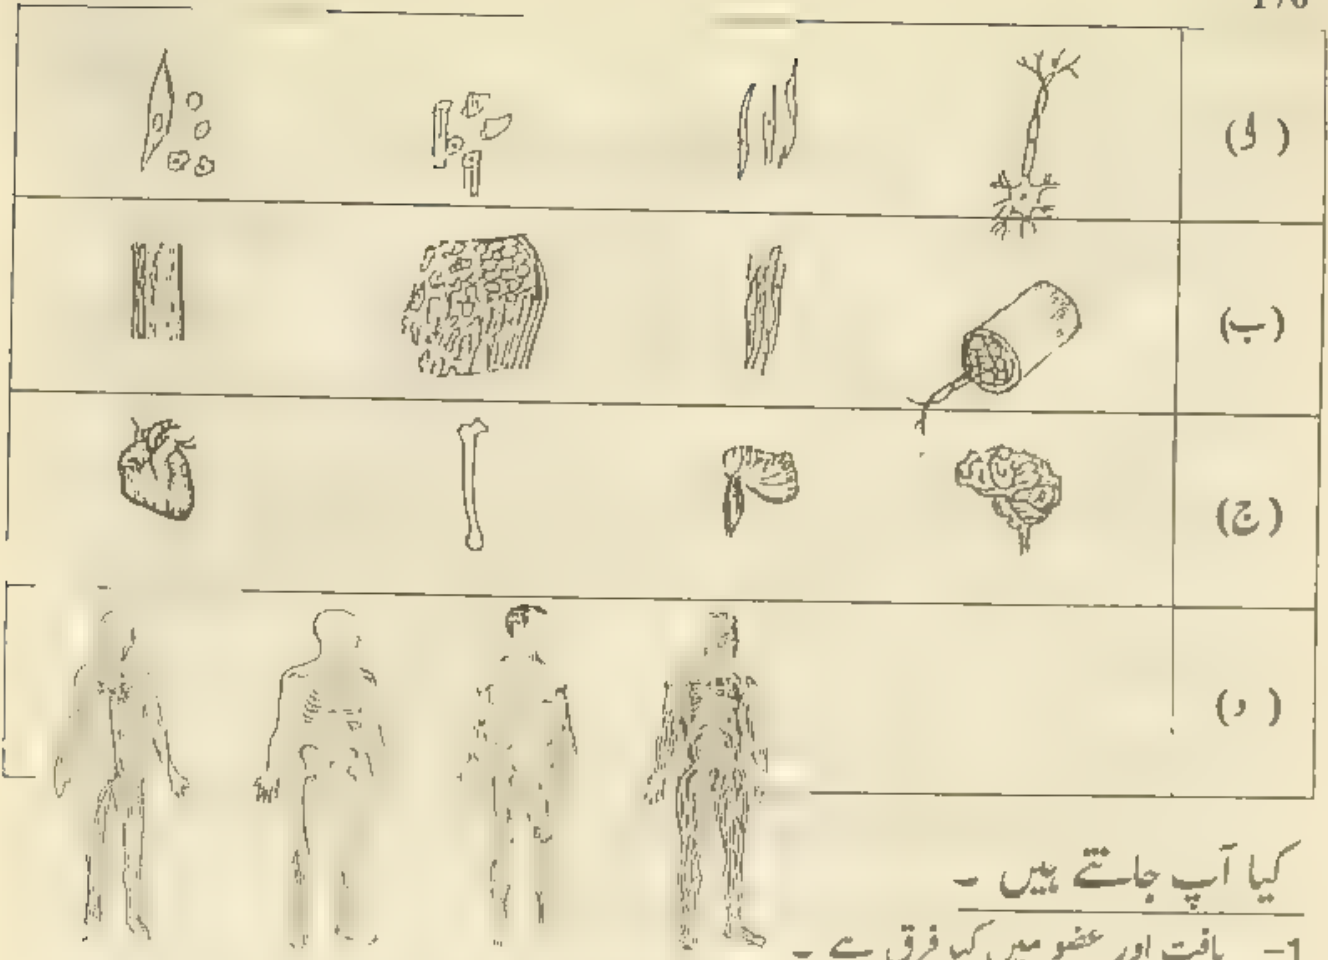 176
( ا )
(ب)
(ج)
( د )
کیا آپ جانتے ہیں ۔
1- بافت اور عضو میں کیا فرق ہے ۔